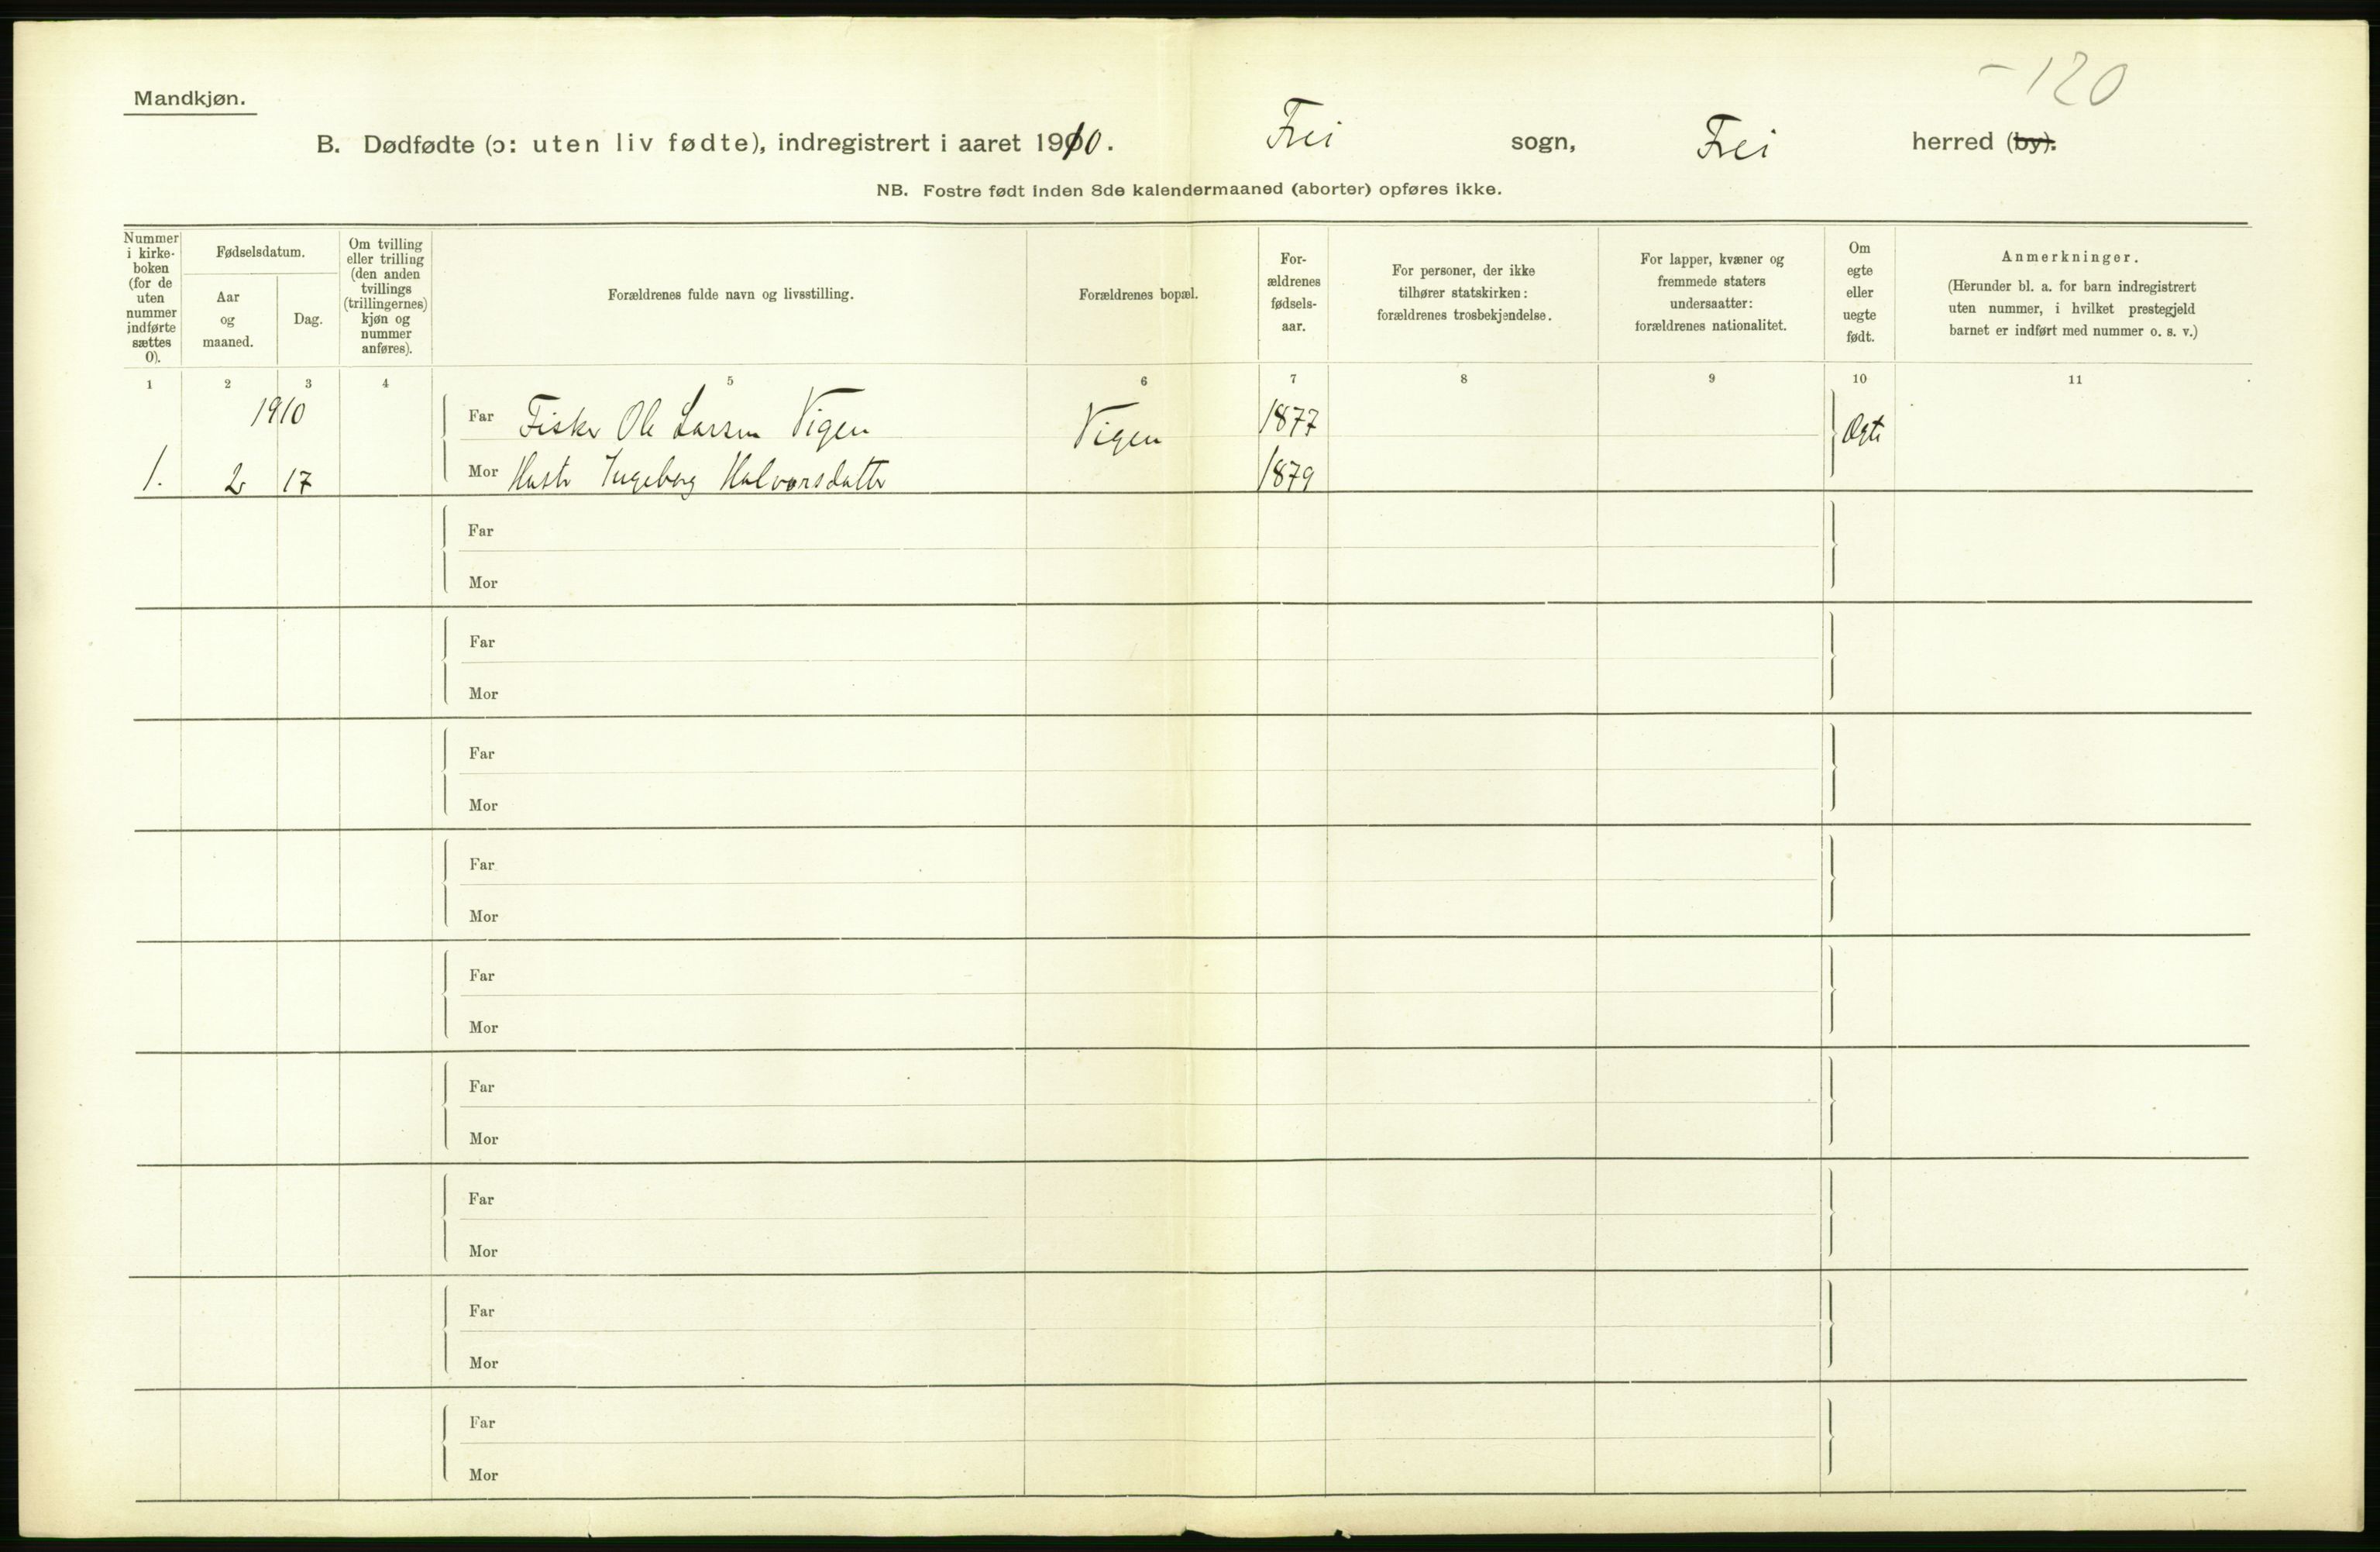 -120
Mandkjøn.
B. Dødfødte (ɔ: uten liv fødte), indregistrert i aaret 1910. Frei sogn, Frei herred (by).
NB. Fostre født inden 8de kalendermaaned (aborter) opføres ikke.
Nummer
i kirke-
boken
(for de
uten
nummer
indførte
sættes
0).
Fødselsdatum.
Aar
og
maaned.
Dag.
Om tvilling
eller trilling
(den anden
tvillings
(trillingernes)
kjøn og
nummer
anføres).
Forældrenes fulde navn og livsstilling.
Forældrenes bopæl.
For-
ældrenes
fødsels-
aar.
For personer, der ikke
tilhører statskirken:
forældrenes trosbekjendelse.
For lapper, kvæner og
fremmede staters
undersaatter:
forældrenes nationalitet.
Om
egte
eller
uegte
født.
Anmerkninger.
(Herunder bl. a. for barn indregistrert
uten nummer, i hvilket prestegjeld
barnet er indført med nummer o. s. v.)
1 2 3 4 5 6 7 8 9 10 11
1910 Far Fisker Ole Larsen Vigen Vigen 1877 Ægte
1. 2 17 Mor Hustr Ingeborg Halvorsdatter 1879
Far
Mor
Far
Mor
Far
Mor
Far
Mor
Far
Mor
Far
Mor
Far
Mor
Far
Mor
Far
Mor